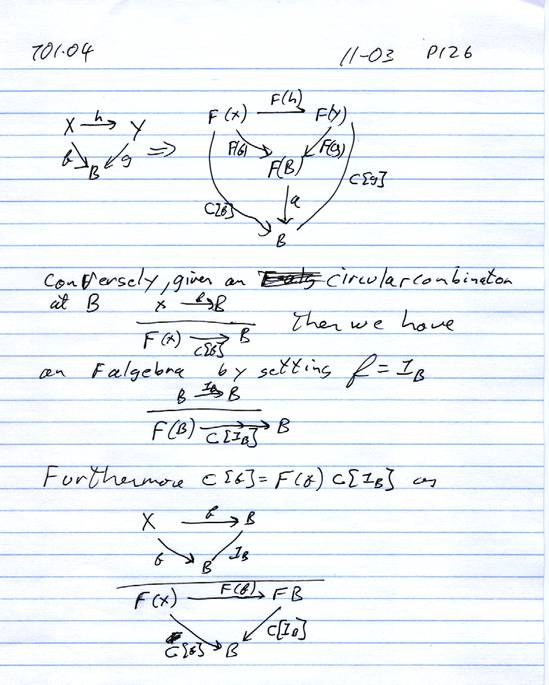 701.04 11-03 P126
F(h)
X h Y F(x) F(y)
f g ⇒ F(f) F(g)
B F(B)
C[f] a C[g]
B
Conversely, given an circular combinaton
at B X f B
F(x) C[f] B Then we have
an Falgebra by setting f = I_B
B I_B B
F(B) C[I_B] B
Furthermore C[f] = F(f) C[I_B] as
X f B
f B I_B
F(x) F(f) FB
C[f] B C[I_B]